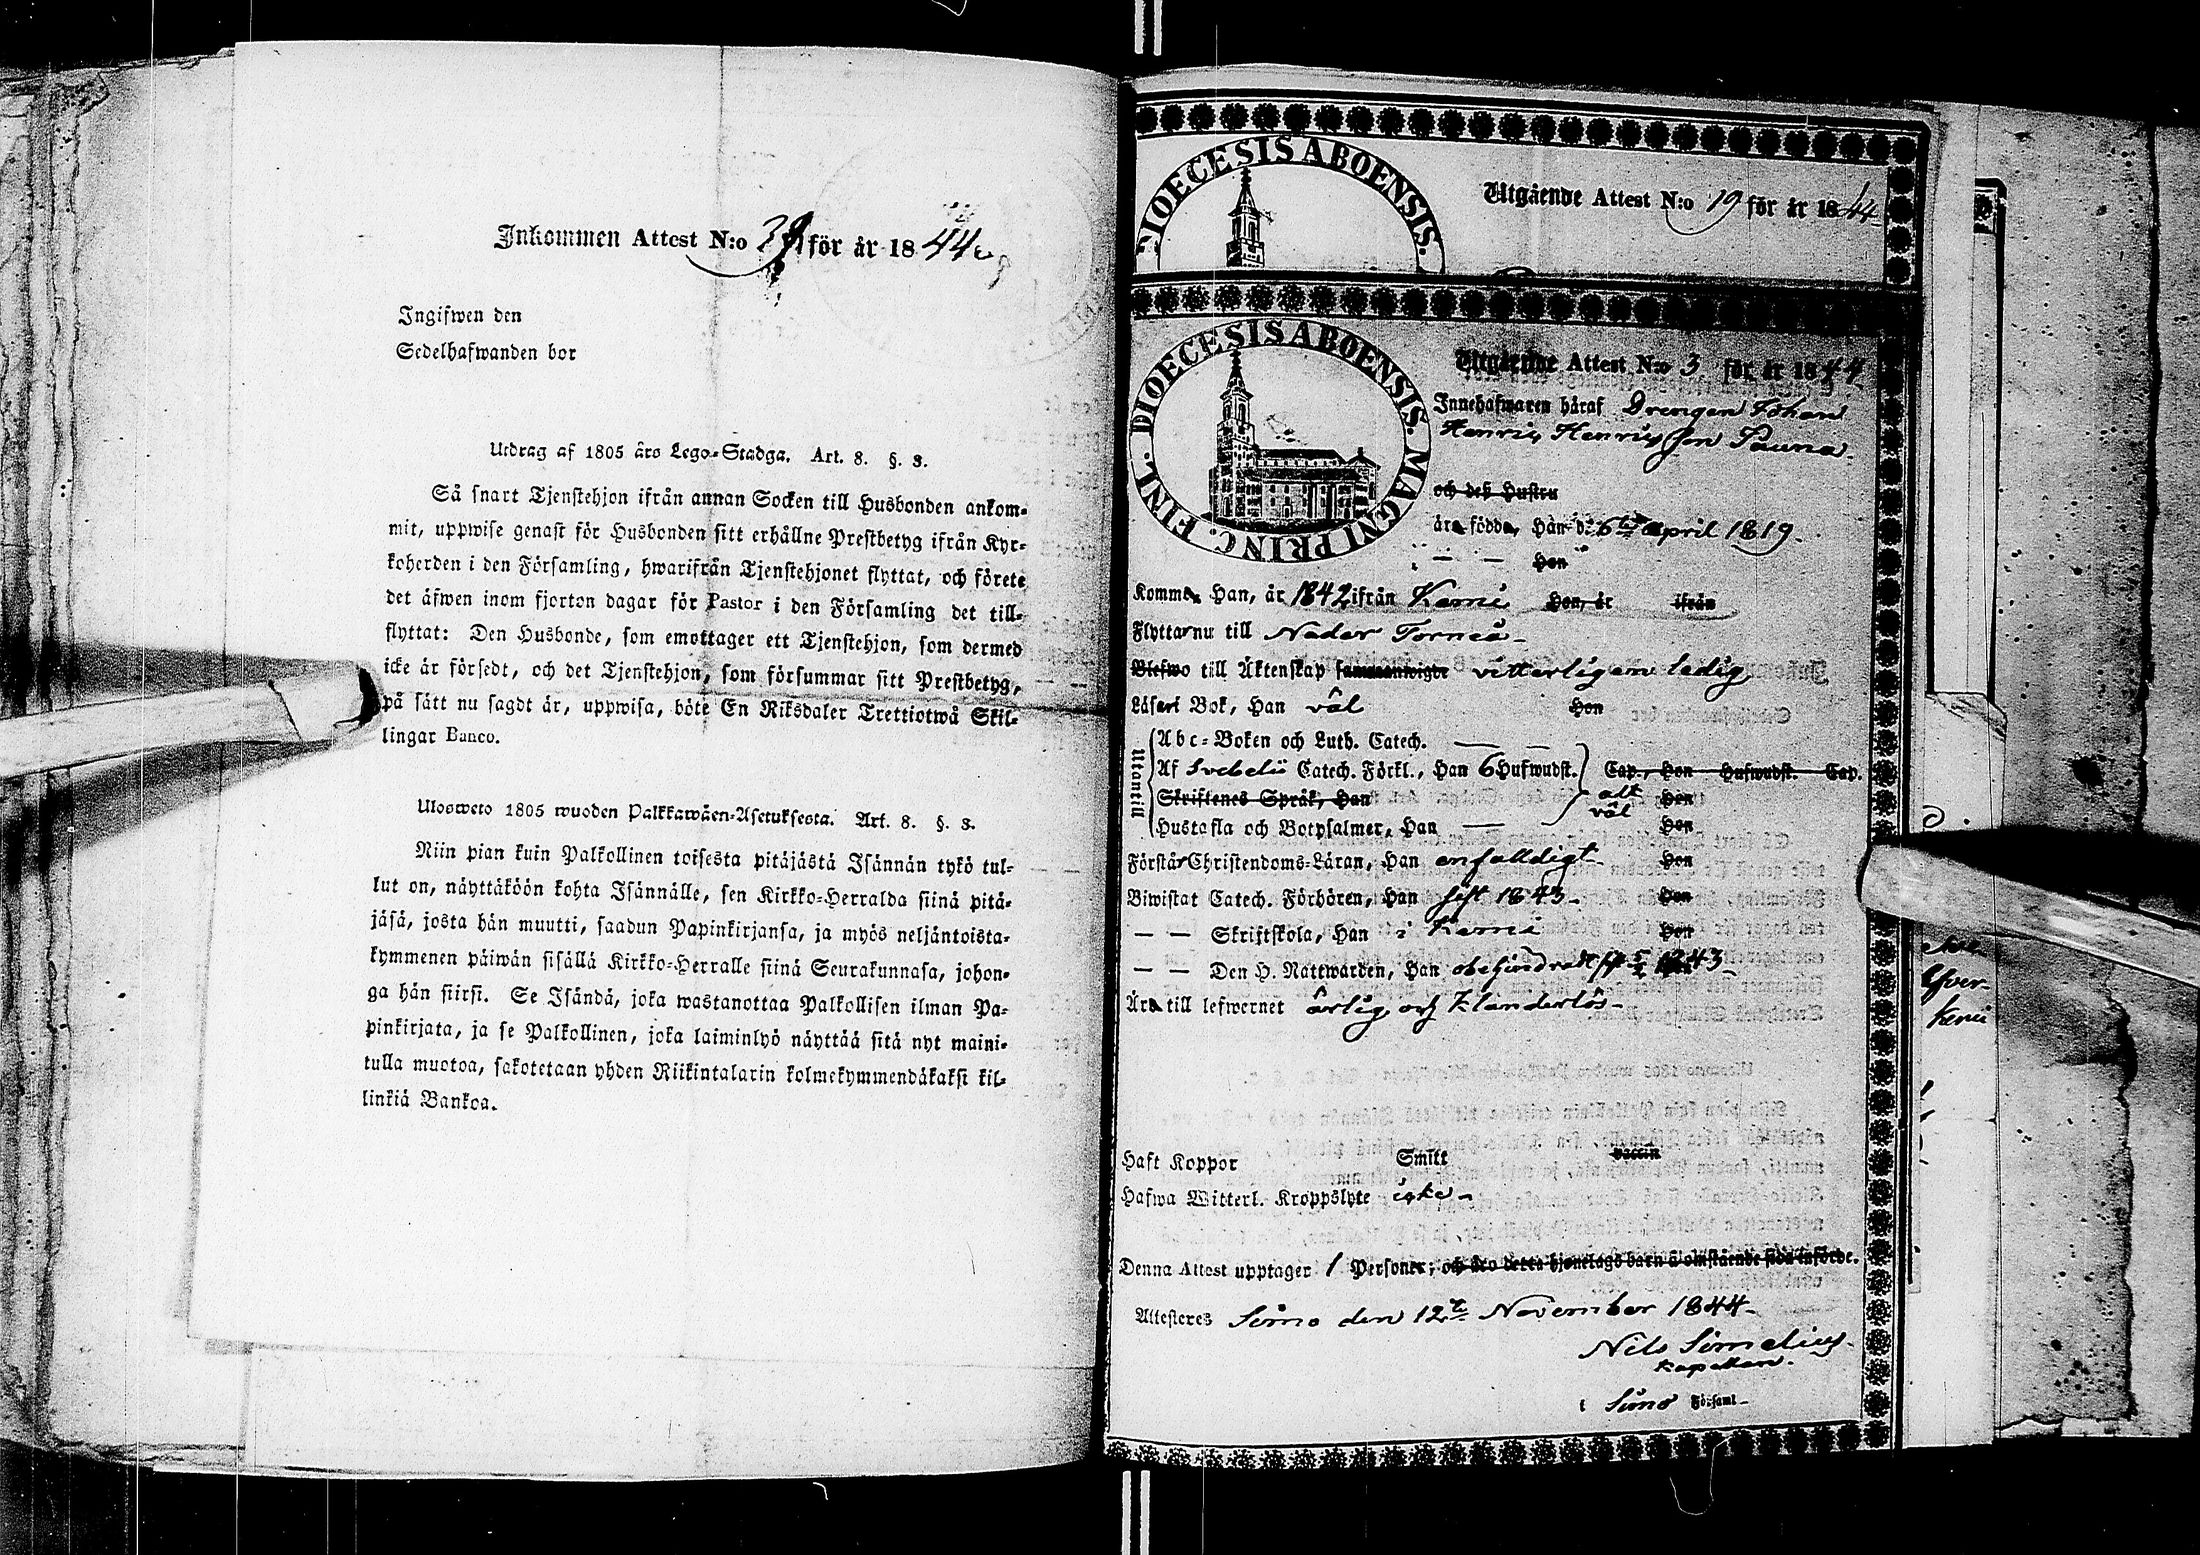 Inkommen Attest N:o 39 för år 1844
Ingifwen den
Sedelhafwanden bor
Utdrag af 1805 års Lego-Stadga. Art. 8. §. 3.
Så snart Tjenstehjon ifrån annan Socken till Husbonden ankom-
mit, uppwise genast för Husbonden sitt erhållne Prestbetyg ifrån Kyr-
koherden i den Församling, hwarifrån Tjenstehjonet flyttat, och förete
det äfwen inom fjorton dagar för Pastor i den Församling det till-
flyttat: Den Husbonde, som emottager ett Tjenstehjon, som dermed
icke är försedt, och det Tjenstehjon, som försummar sitt Prestbetyg,
på sätt nu sagdt är, uppwisa, böte En Riksdaler Trettiotwå Skil-
lingar Banco.
Ulosweto 1805 wuoden Palkkawäen-Asetuksesta. Art. 8. §. 3.
Niin pian kuin Palkollinen toisesta pitäjästä Isännän tykö tul-
lut on, näyttäköön kohta Isännälle, sen Kirkko-Herralda siinä pitä-
jäsä, josta hän muutti, saadun Papinkirjansa, ja myös neljäntoista-
kymmenen päiwän sisällä Kirkko-Herralle siinä Seurakunnasa, johon-
ga hän siirsi. Se Isändä, joka wastanottaa Palkollisen ilman Pa-
pinkirjata, ja se Palkollinen, joka laiminlyö näyttää sitä nyt maini-
tulla muotoa, sakotetaan yhden Riikintalarin kolmekymmendäkaksi kil-
linkiä Bankoa.
DIOECESIS ABOENSIS.
Utgående Attest N:o 19 för år 1844
DIOECESIS ABOENSIS. MAGNI PRINC. FINL.
Utgående Attest N:o 3 för år 1844
Innehafwaren häraf Drengen Johan
Henric Henricsson Pauna
och deß Hustru
äro födde, Han d. 6te April 1819
— — Hon
Komme Han, år 1842 ifrån Kemi Hon, år ifrån
Flytta nu till Neder Torneå
Blefwo till Äktenskap sammanwigde vitterligen ledig
Läser i Bok, Han väl Hon
Utantill
Abc-Boken och Luth. Catech. — —
Af Svebelii Catech. Förkl., Han 6 Hufwudst. Cap., Hon Hufwudst. Cap.
Skriftenes Språk, Han allt Hon
väl
Hustafla och Botpsalmer, Han — Hon
Förstår Christendoms-Läran, Han enfaldigt Hon
Biwistat Catech. Förhören, Han sist 1843 Hon
— — Skriftskola, Han i Kemi Hon
— — Den H. Nattwarden, Han obehindradt 1843
Äro till lefwernet ärlig och klanderlös
Haft Koppor Smitt vaccin
Hafwa Witterl. Kroppslyte icke
Denna Attest upptager 1 Personer; och äro detta hjonelags barn å omstående sida införde.
Attesteres Simo den 12te November 1844
Nils Simelius
Kapellan.
i Simo Församl.